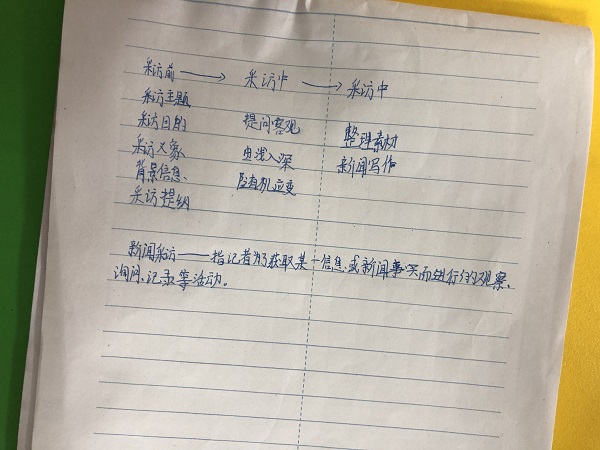 采访前 → 采访中 → 采访中
采访主题
采访目的 提问客观 整理素材
采访对象 由浅入深 新闻写作
背景信息、 随机应变
采访提纲
新闻采访——指记者为了获取某一信息、或新闻事实而进行的观察、
询问、记录等活动。